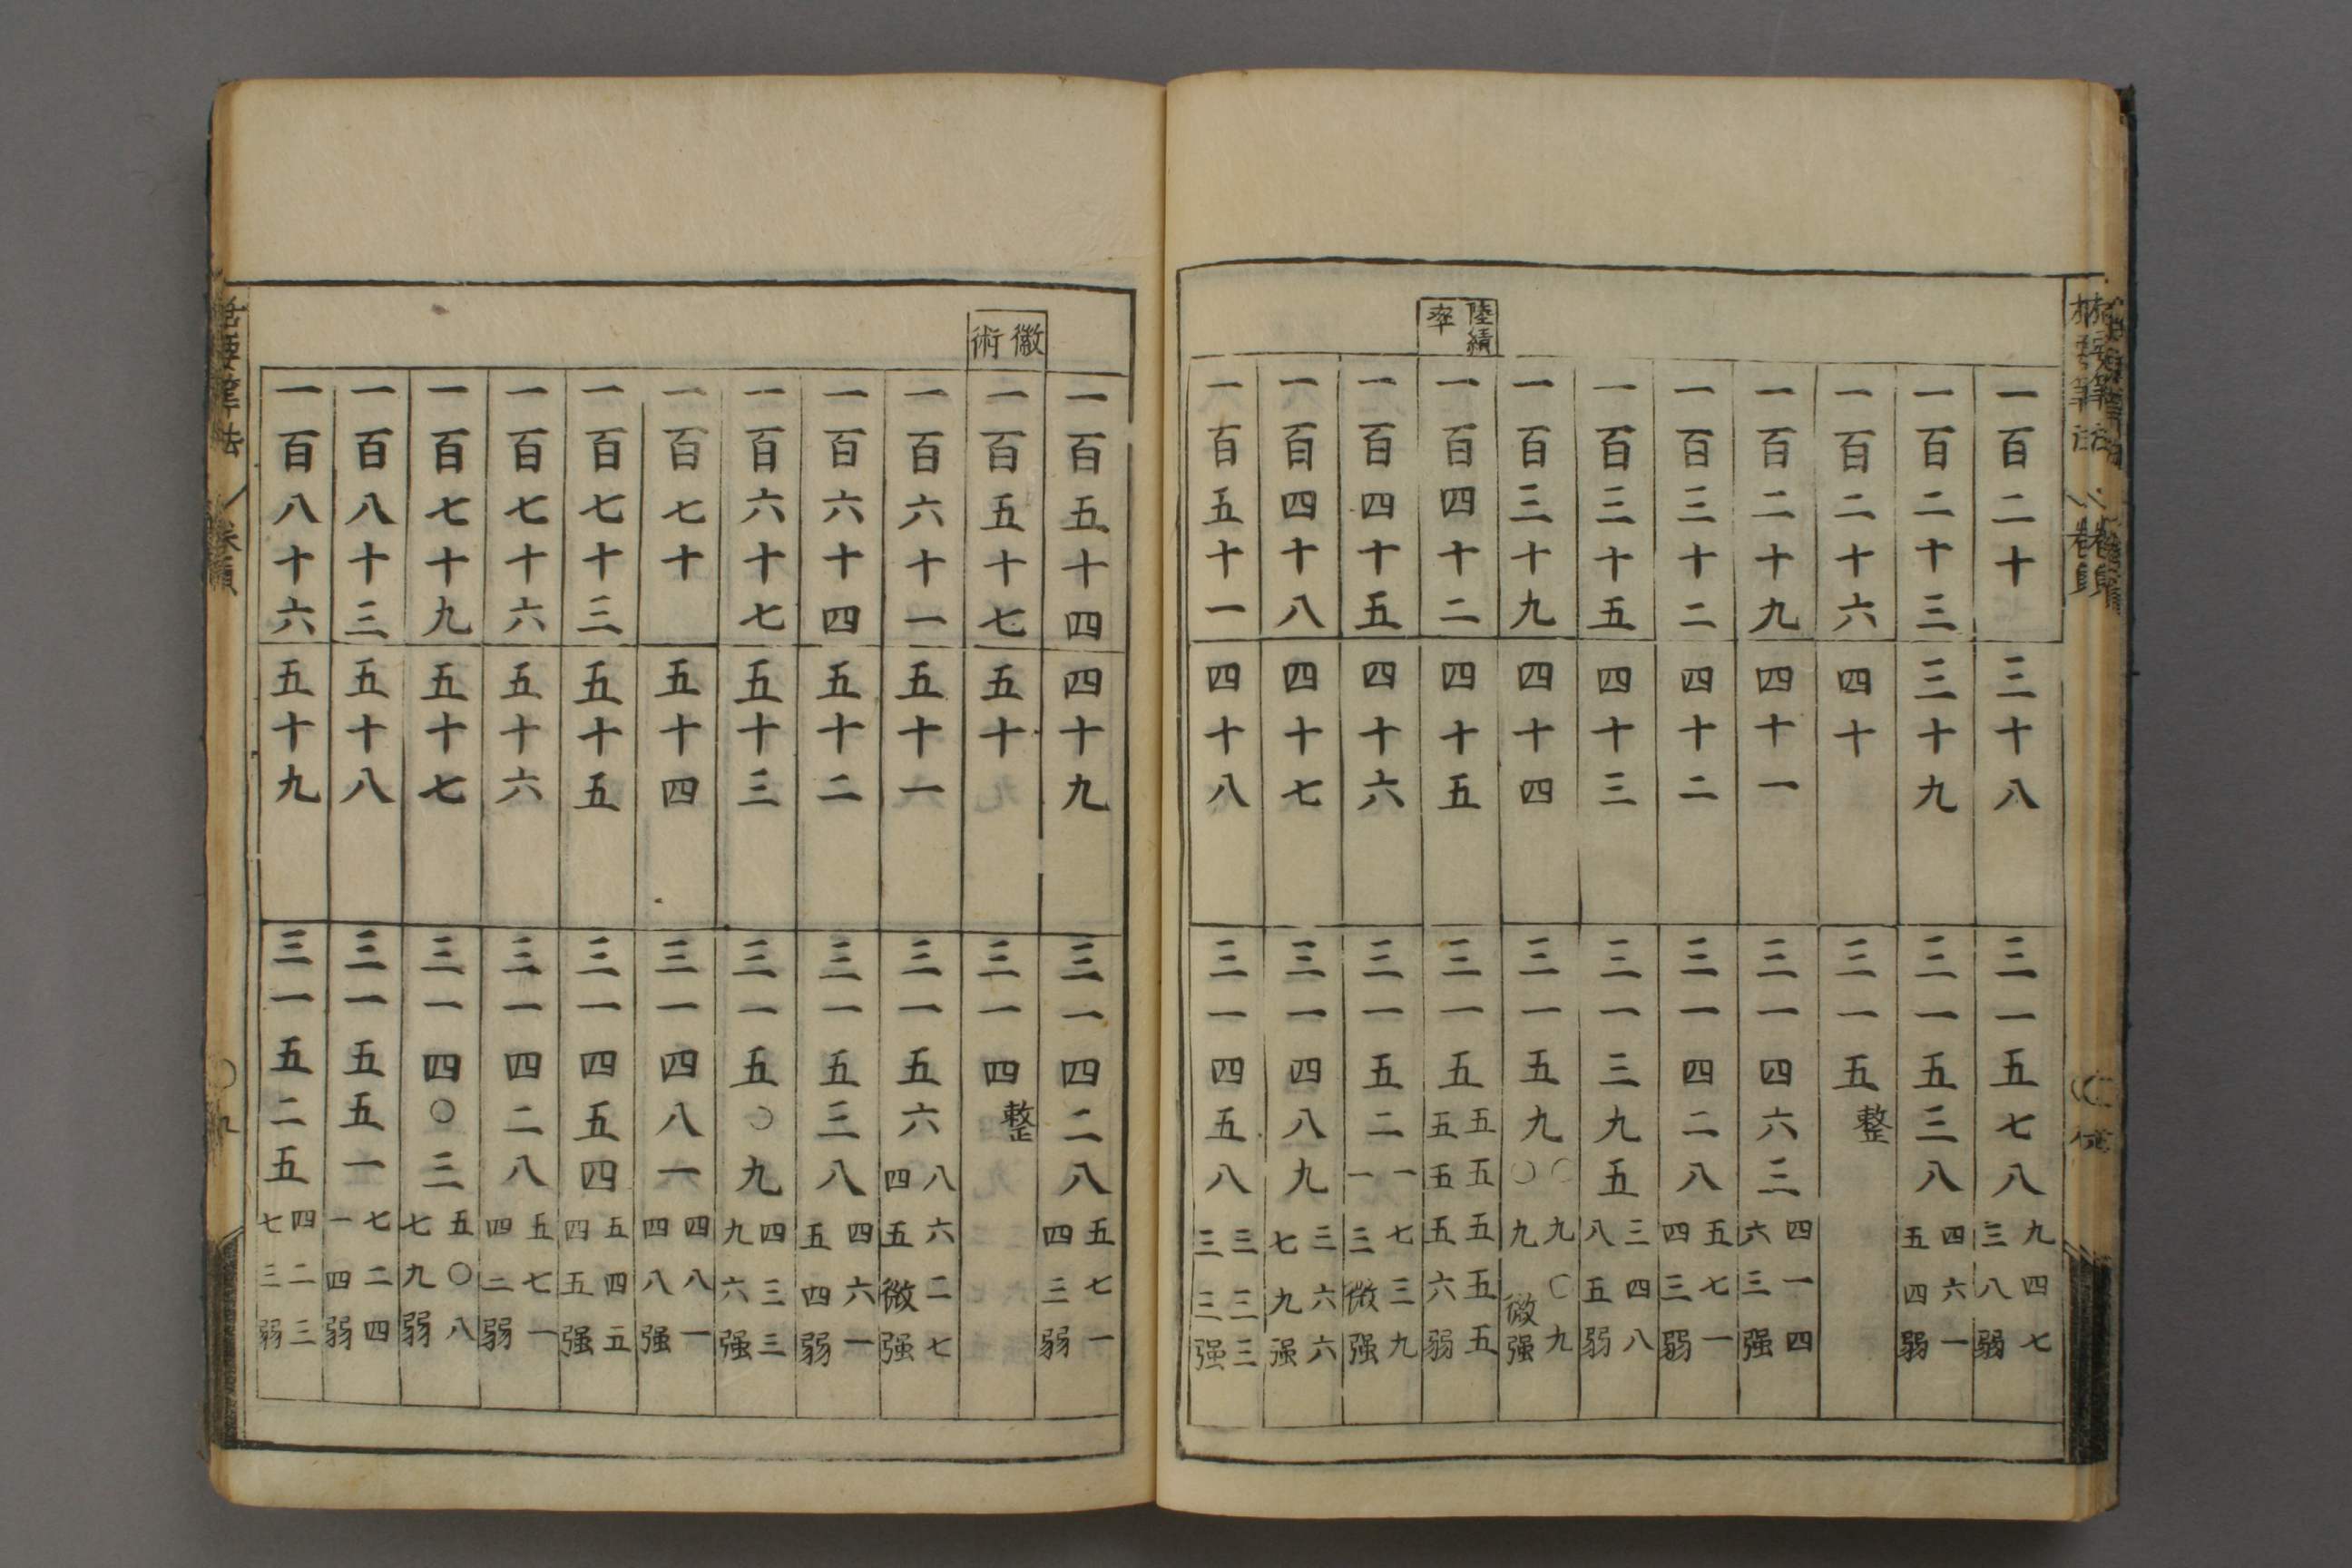 陸績率
一百二十 三十八 三一五七八九四七三八弱
一百二十三 三十九 三一五三八四六一五四弱
一百二十六 四十 三一五整
一百二十九 四十一 三一四六三四一四六三强
一百三十二 四十二 三一四二八五七一四三弱
一百三十五 四十三 三一三九五三四八八五弱
一百三十九 四十四 三一五九〇九〇九〇九微强
一百四十二 四十五 三一五五五五五五五五五六弱
一百四十五 四十六 三一五二一七三九一三微强
一百四十八 四十七 三一四八九三六六七九强
一百五十一 四十八 三一四五八三三三三三强
徽術
一百五十四 四十九 三一四二八五七一四三弱
一百五十七 五十 三一四整
一百六十一 五十一 三一五六八六二七四五微强
一百六十四 五十二 三一五三八四六一五四弱
一百六十七 五十三 三一五〇九四三三九六强
一百七十 五十四 三一四八一四八一四八强
一百七十三 五十五 三一四五四五四五四五强
一百七十六 五十六 三一四二八五七一四二弱
一百七十九 五十七 三一四〇三五〇八七九弱
一百八十三 五十八 三一五五一七二四一四弱
一百八十六 五十九 三一五二五四二三七三弱